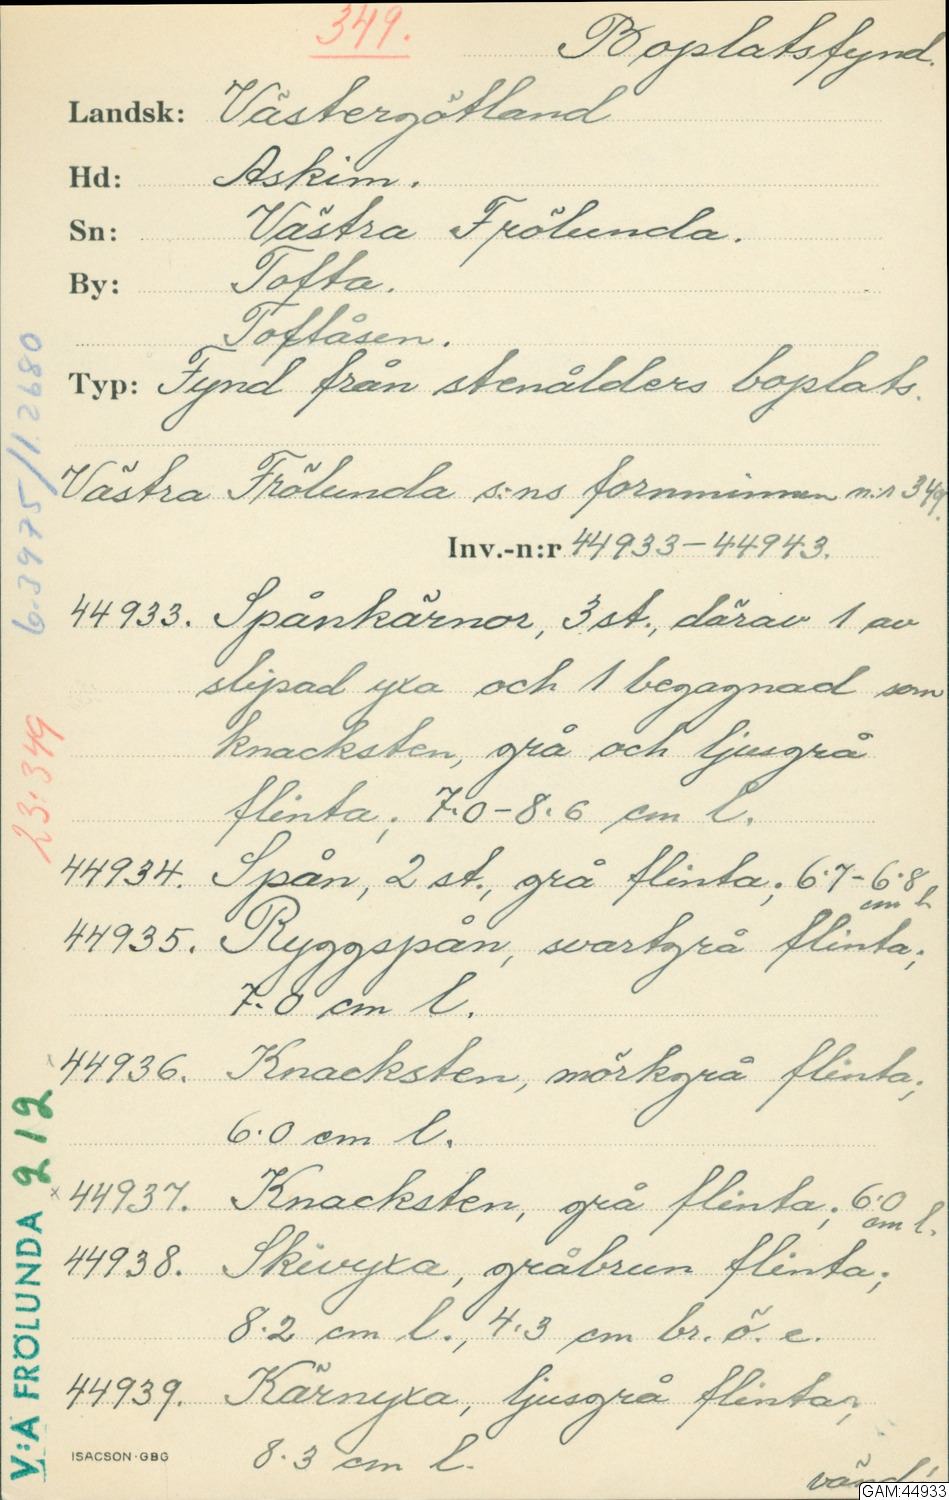 349.
Boplatsfynd.
Landsk: Västergötland
Hd: Askim.
Sn: Västra Frölunda.
By: Tofta.
Toftåsen.
Typ: Fynd från stenålders boplats.
Västra Frölunda s:ns fornminnen n:r 349.
Inv.-n:r 44933-44943.
44933. Spånkärnor, 3 st., därav 1 av
slipad yxa och 1 begagnad som
knacksten, grå och ljusgrå
flinta; 7.0-8.6 cm l.
44934. Spån, 2 st., grå flinta; 6.7-6.8
cm l
44935. Ryggspån, svartgrå flinta;
7.0 cm l.
44936. Knacksten, mörkgrå flinta;
6.0 cm l.
x 44937. Knacksten, grå flinta; 6.0
cm l.
44938. Skivyxa, gråbrun flinta;
8.2 cm l., 4.3 cm br. ö. e.
44939. Kärnyxa, ljusgrå flinta;
8.3 cm l.
vänd!
ISACSON·GBG
6.3975/1.2680
23:349
V:A FRÖLUNDA 212
GAM:44933